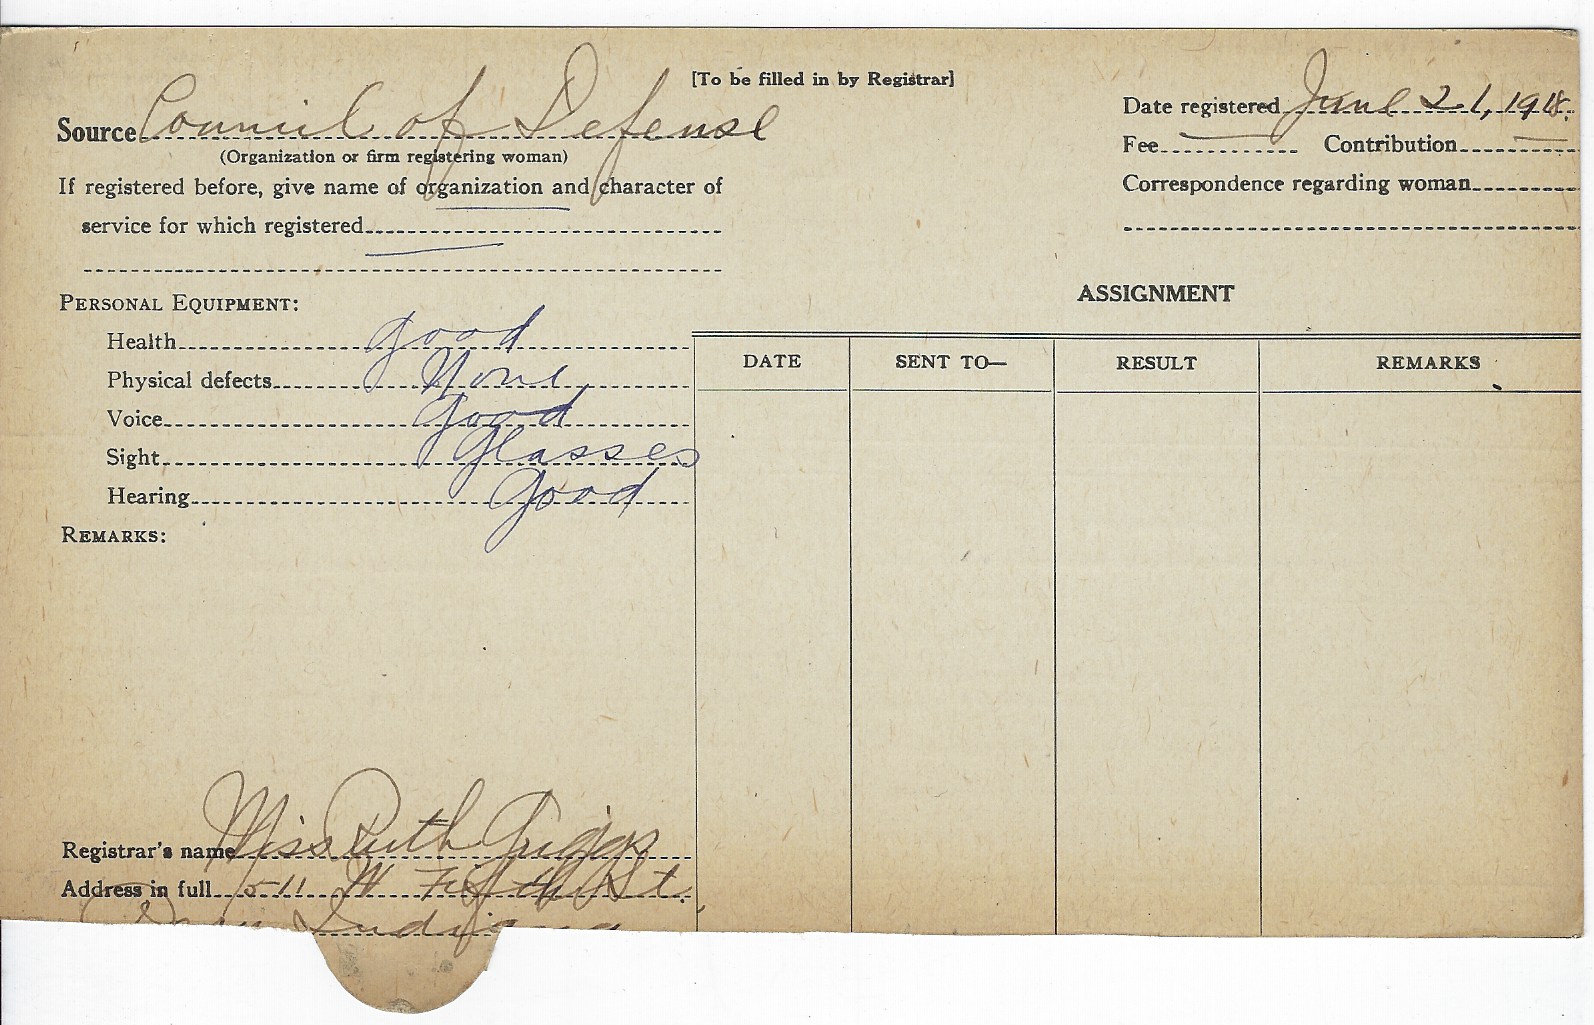 [To be filled in by Registrar]
Source Council of Defense
(Organization or firm registering woman)
If registered before, give name of organization and character of
service for which registered
Date registered June 21, 1918.
Fee Contribution
Correspondence regarding woman
PERSONAL EQUIPMENT:
Health good
Physical defects None
Voice good
Sight Glasses
Hearing good
REMARKS:
ASSIGNMENT
DATE SENT TO— RESULT REMARKS
Registrar's name Miss Ruth Griggs
Address in full 511 W Fifth St.
Indiana